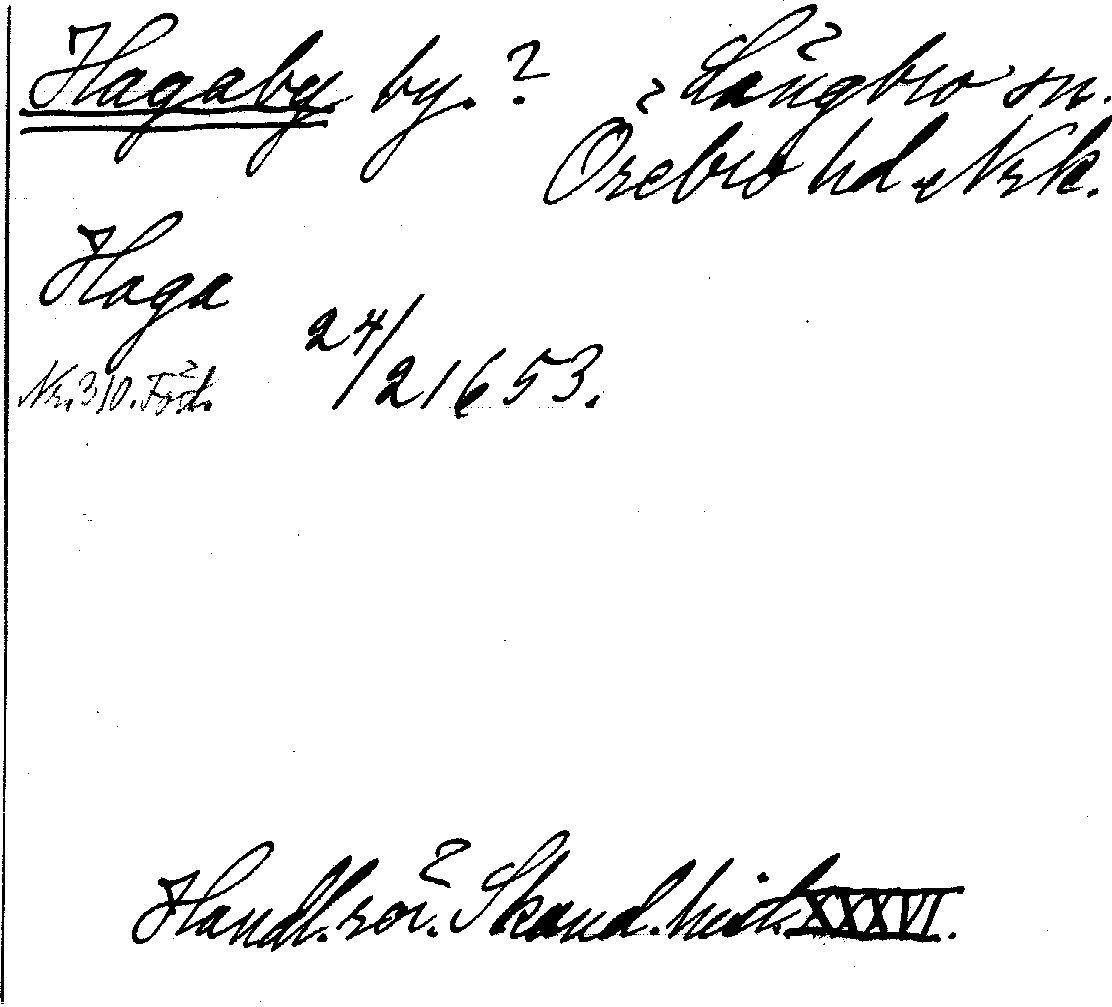 Hagaby by. ? Längbro sn.
Örebro hd. Nrk.
Haga
24/2 1653.
Nr. 310. Fört.
Handl. rör. Skand. hist. XXXVI.